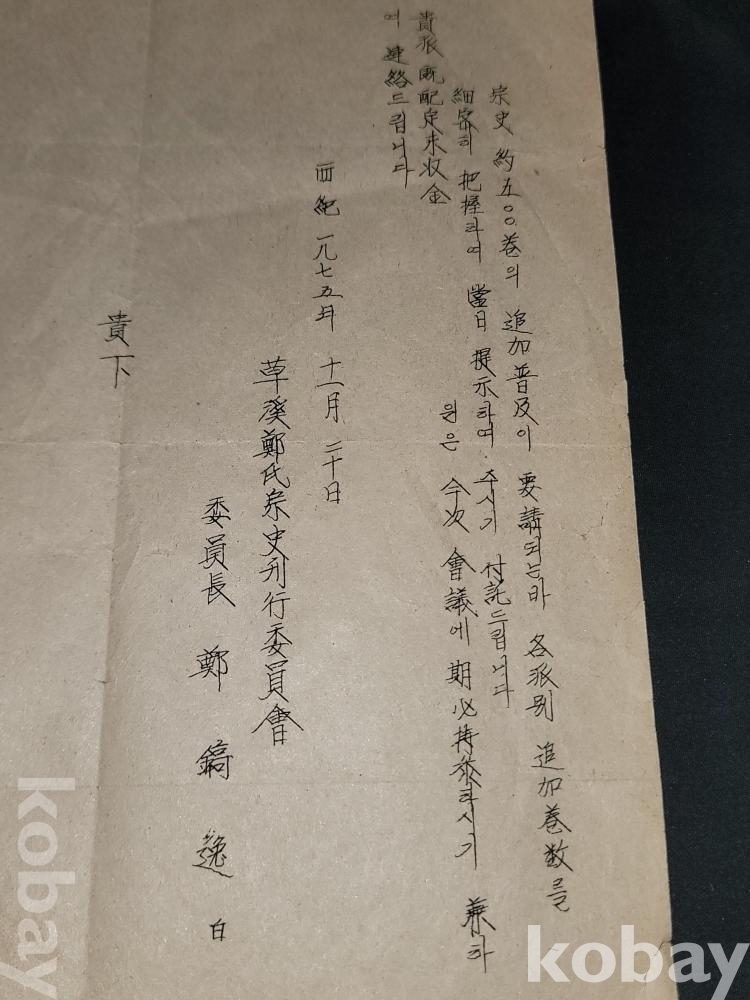 宗史 約五〇〇卷의 追加普及이 要請되는바 各派別 追加卷数를
細密히 把握하여 當日 提示하여 주시기 付託드립니다
貴派 既配定未収金 원은 今次 會議에 期必持參하시기 兼하
여 連絡드립니다
西紀 一九七五年 十一月 二十日
草溪鄭氏宗史刊行委員會
委員長 鄭 鎬 逸 白
貴下
kobay
kobay